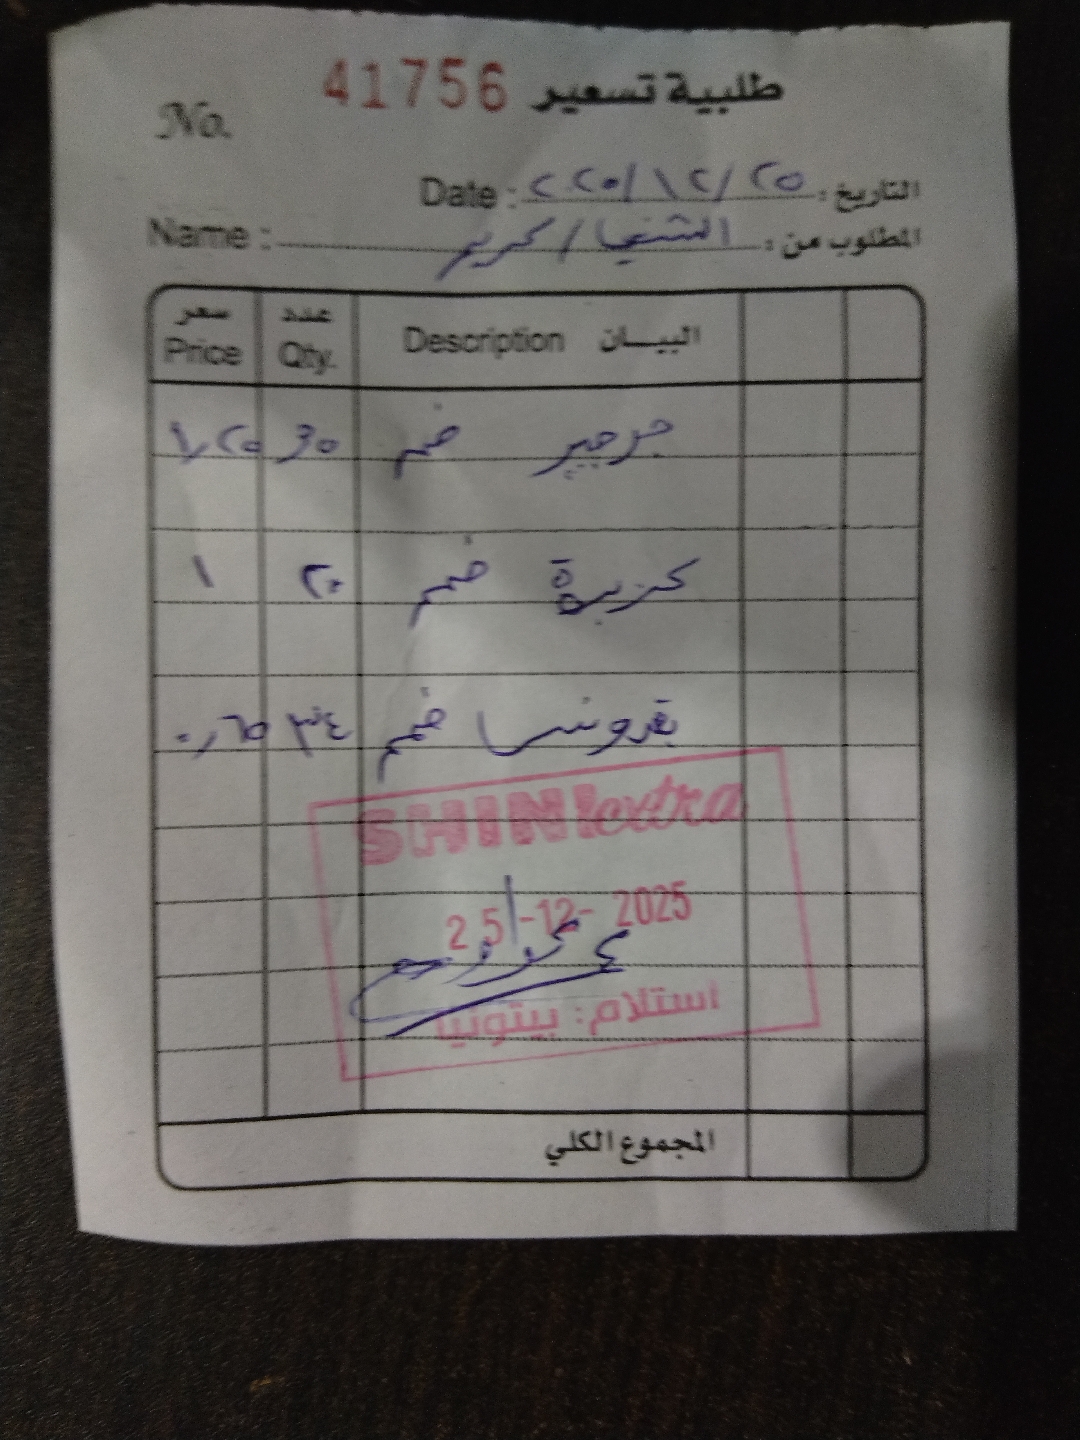 طلبية تسعير 41756
No.
التاريخ : ٢٥/١٢/٢٠٢٥ Date :
المطلوب من : الشني / كرير Name :
البيان Description عدد Qty. سعر Price
جرجير ضمم ٣٥ ١,٢٥
كزبرة ضمم ٢٠ ١
بقدونس ضمم ٣٤ ٠,٦٥
SHINI extra
25-12-2025
استلام: بيتونيا
المجموع الكلي